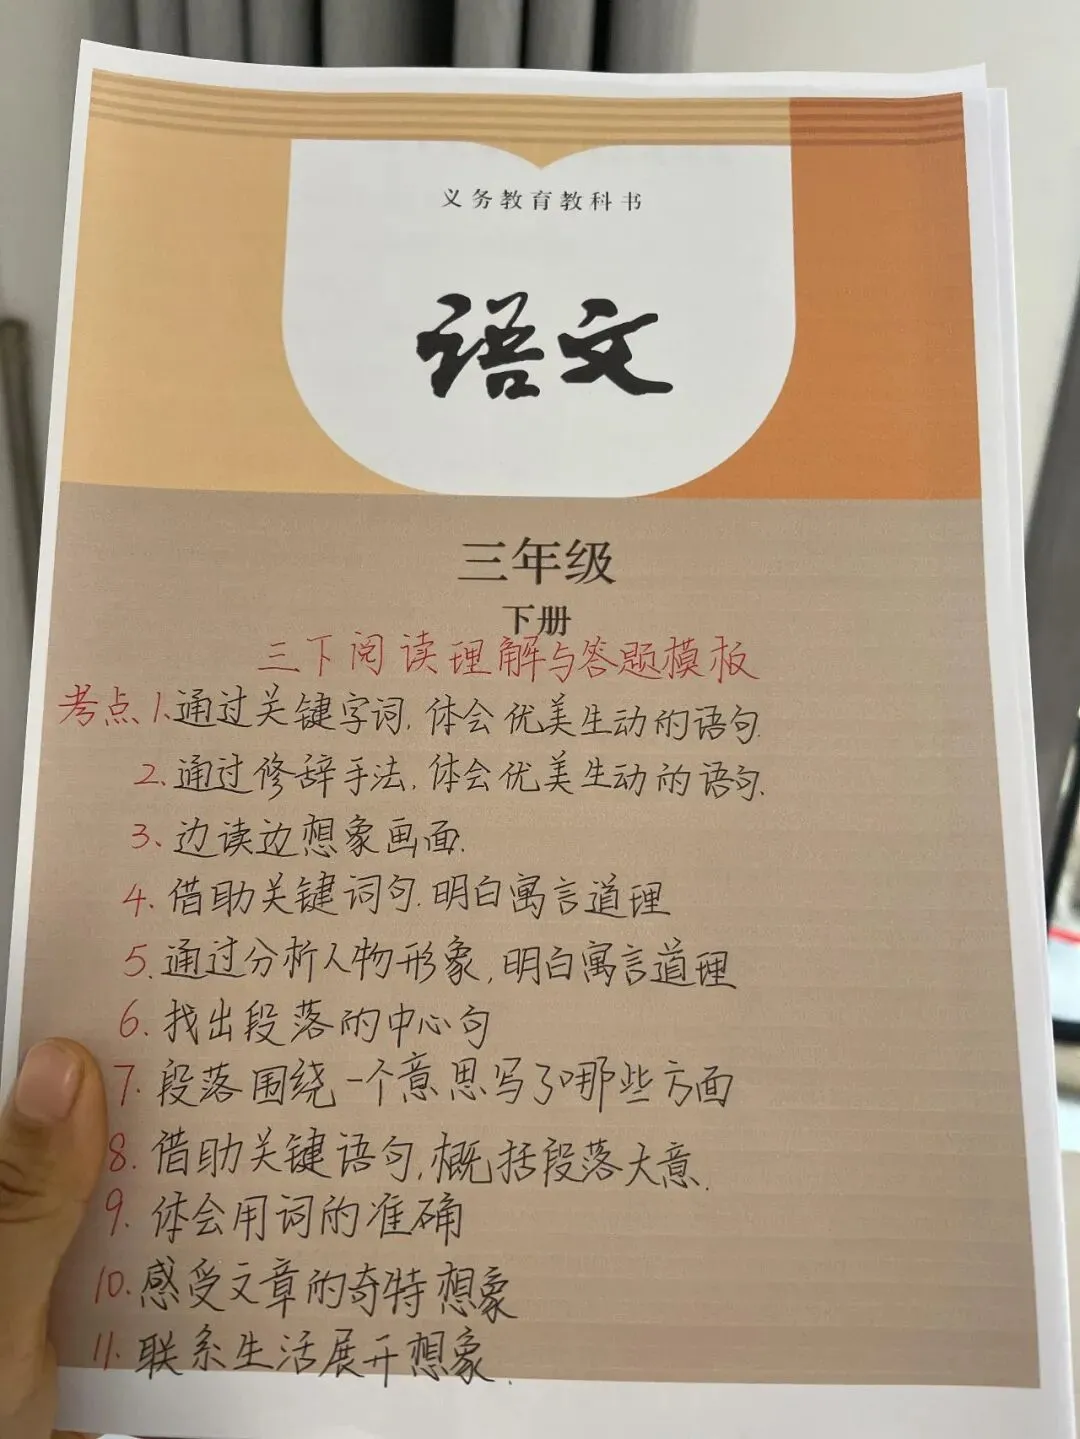 义务教育教科书
语文
三年级
下册
三下阅读理解与答题模板
考点1.通过关键字词.体会优美生动的语句.
2.通过修辞手法.体会优美生动的语句.
3.边读边想象画面.
4.借助关键词句.明白寓言道理
5.通过分析人物形象,明白寓言道理
6.找出段落的中心句
7.段落围绕一个意思写了哪些方面
8.借助关键语句,概括段落大意.
9.体会用词的准确
10.感受文章的奇特想象
11.联系生活展开想象.